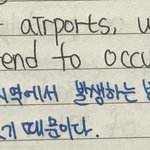 airports, u
end to occu
역에서 발생하는
기 때문이다.